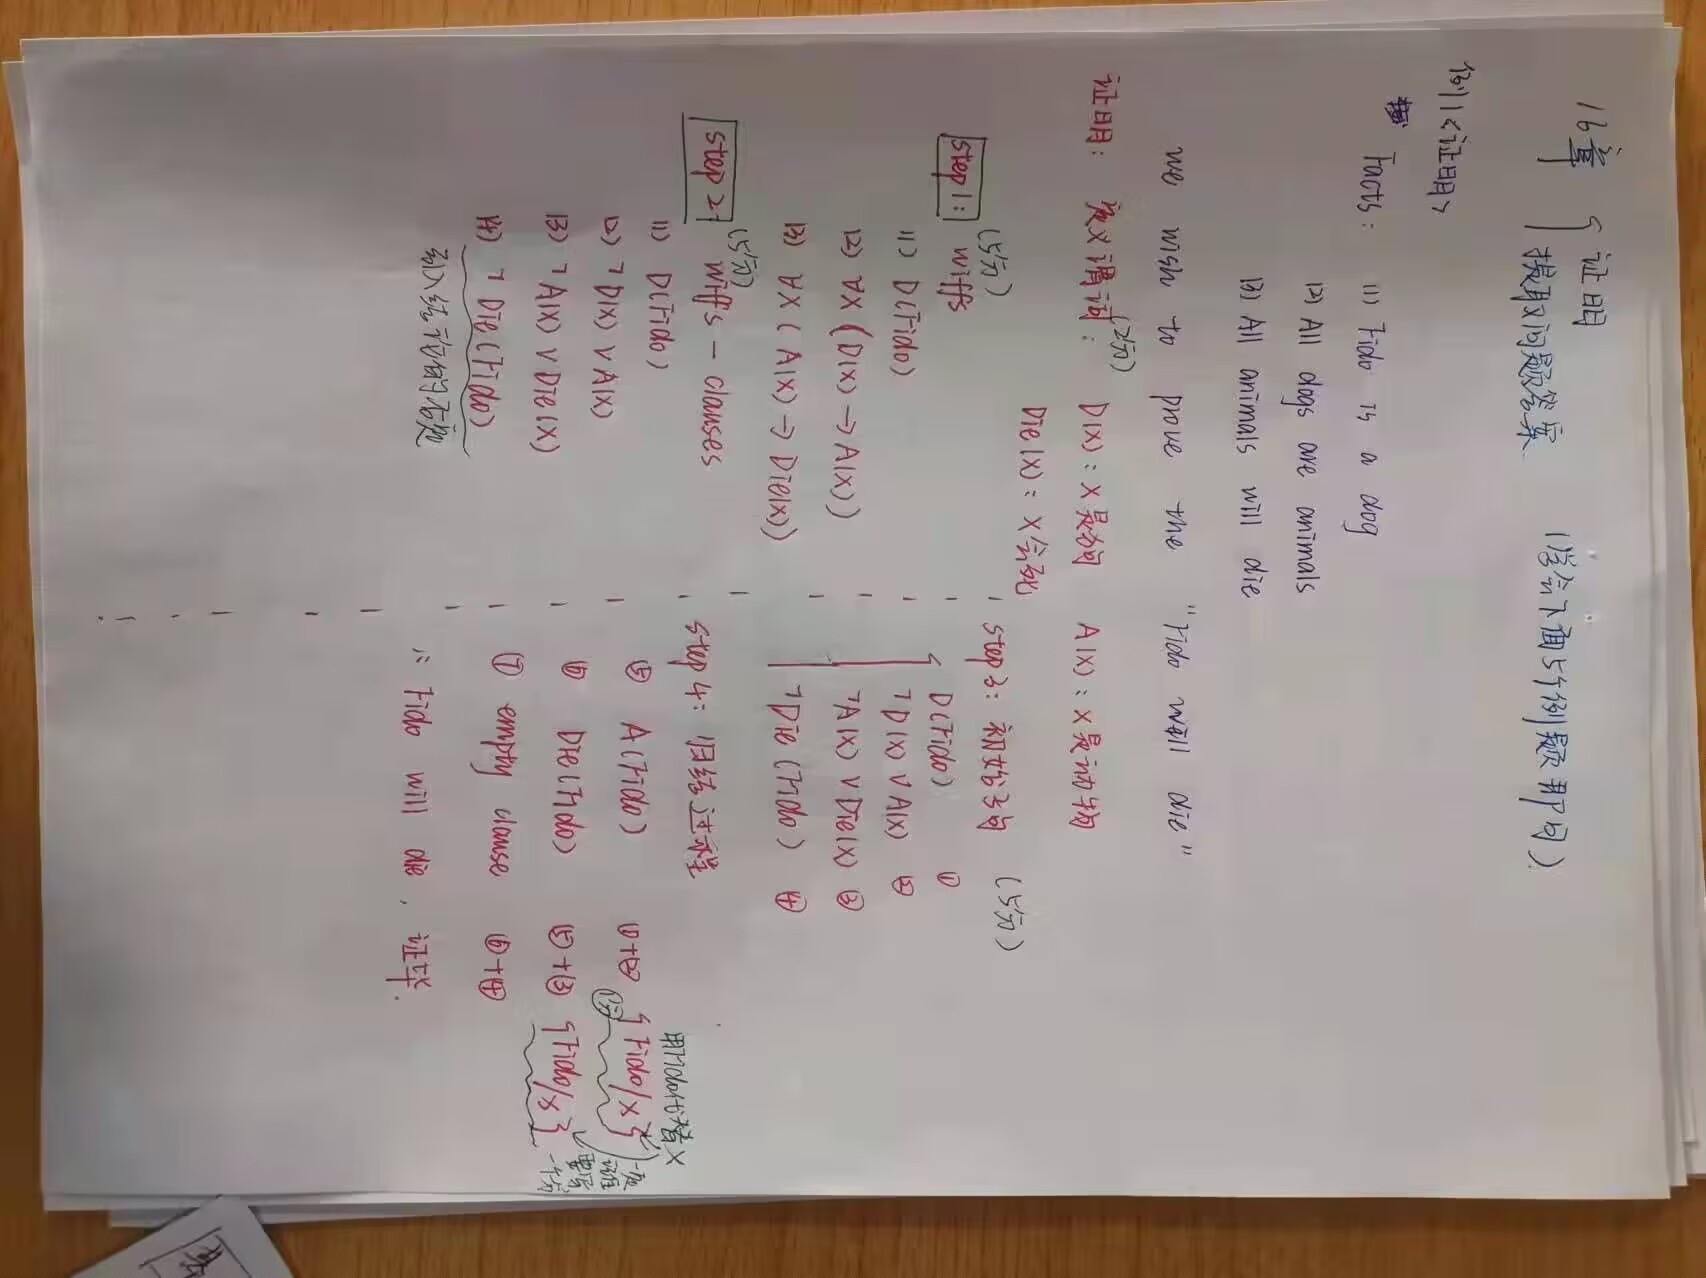 16章 { 证明
提取问题答案 (学会下面5个例题即可).
例1<证明>
Facts: (1) Fido is a dog
(2) All dogs are animals
(3) All animals will die
we wish to prove the "Fido will die"
证明: 定义谓词(2分): D(X): X是狗 A(X): X是动物
Die(X): X会死
(5分)
step 1: wiffs
(1) D(Fido)
(2) ∀X (D(X) → A(X))
(3) ∀X (A(X) → Die(x))
(5分)
step 2: wiffs - clauses
(1) D(Fido)
(2) ¬D(X) ∨ A(X)
(3) ¬A(X) ∨ Die(X)
(4) ¬Die(Fido)
引入结论的否定
step 3: 初始子句 (5分)
D(Fido) ①
¬D(X) ∨ A(X) ②
¬A(X) ∨ Die(X) ③
¬Die(Fido) ④
step 4: 归结过程
用Fido代替X
⑤ A(Fido) ①+② {Fido/x}
(1分)
⑥ Die(Fido) ⑤+③ {Fido/x}
一定
要写
一个分
⑦ empty clause ⑥+④
∴ Fido will die, 证毕.